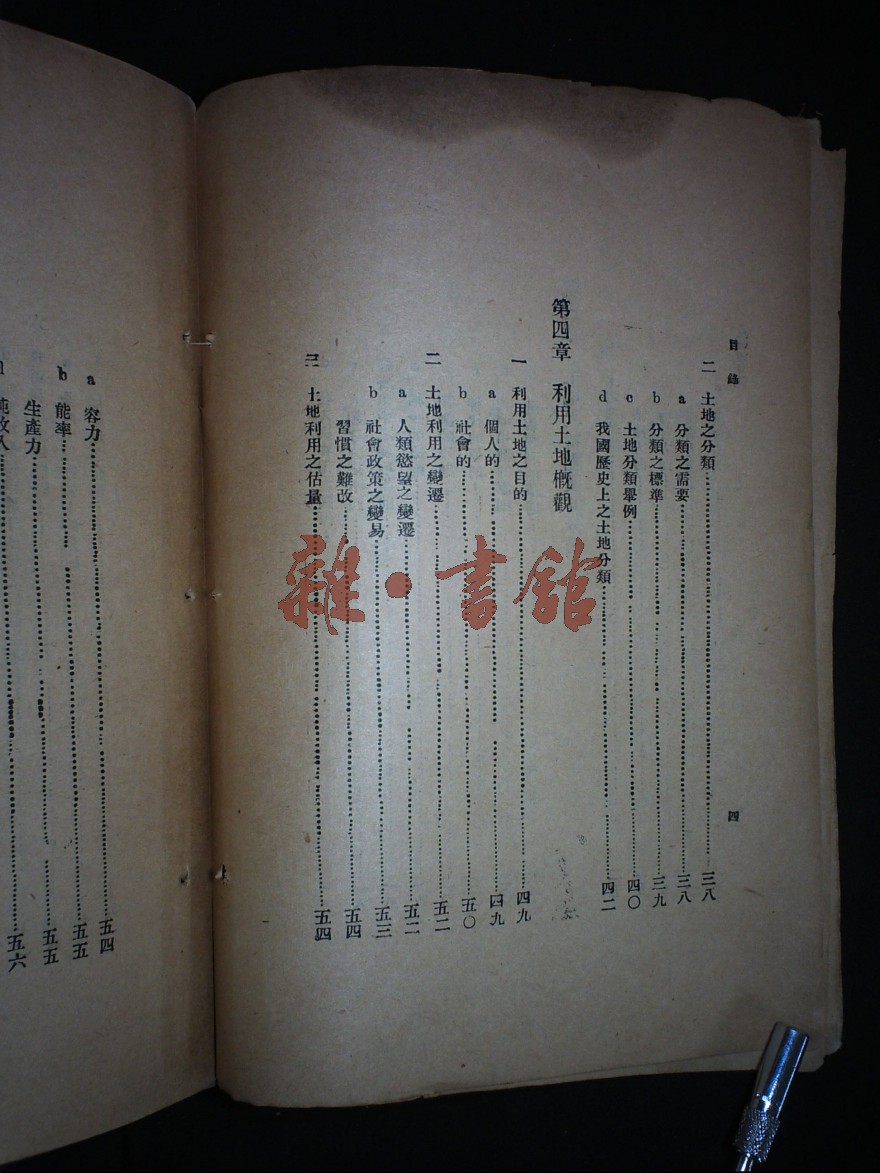 目錄
四
二 土地之分類……三八
a 分類之需要……三八
b 分類之標準……三九
c 土地分類舉例……四〇
d 我國歷史上之土地分類……四二
第四章 利用土地概觀
一 利用土地之目的……四九
a 個人的……四九
b 社會的……五〇
二 土地利用之變遷……五二
a 人類慾望之變遷……五二
b 社會政策之變易……五三
習慣之難改……五四
三 土地利用之估量……五四
a 容力……五四
b 能率……五五
生產力……五五
d 純收入……五六
雜·書館